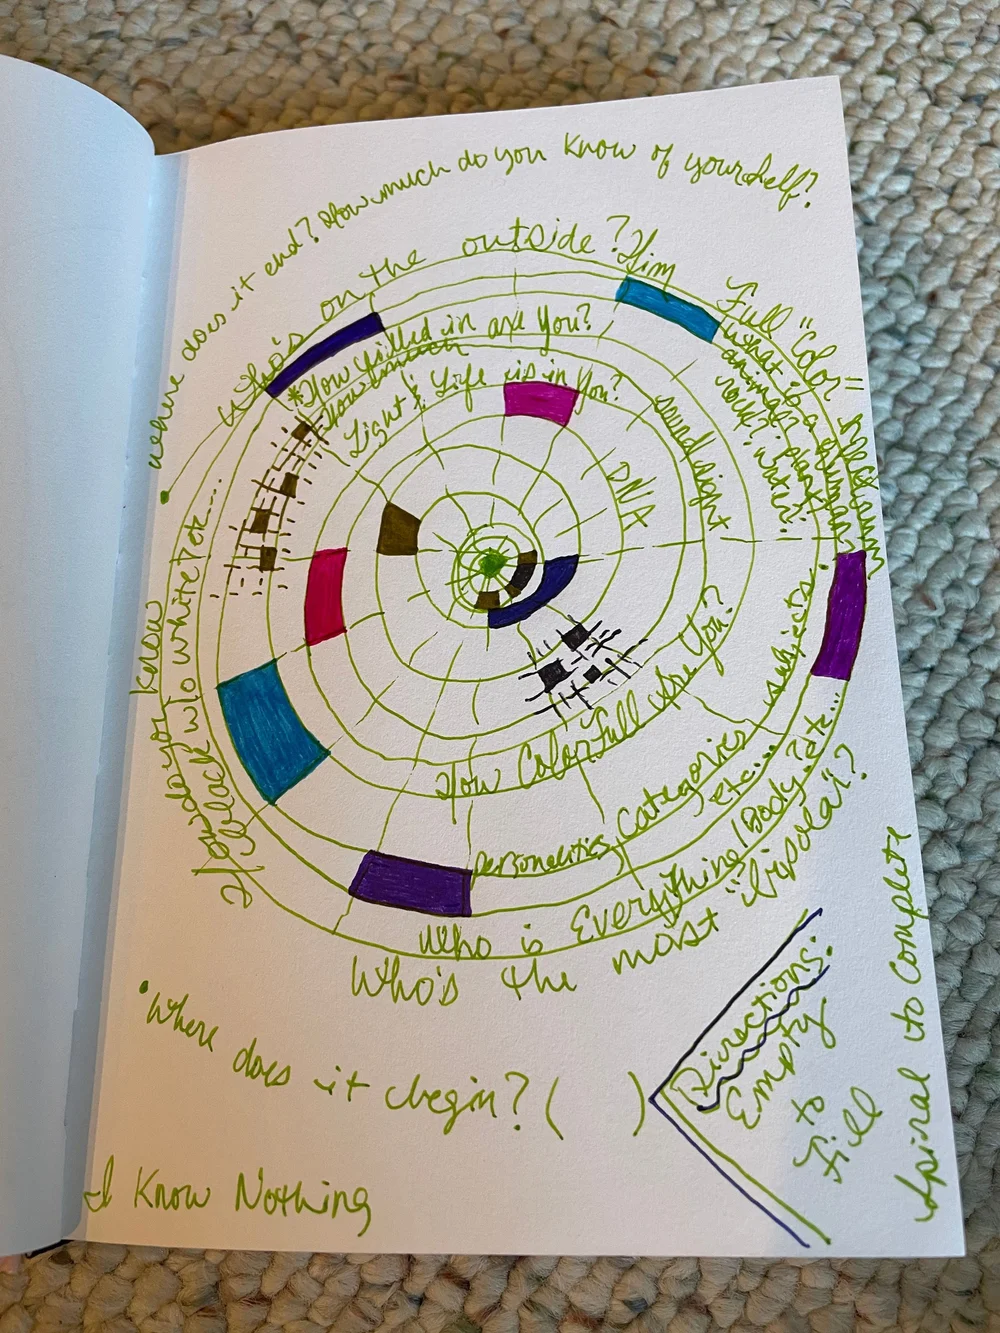 Where does it end? How much do you know of yourself?
Who's on the outside? Him
Full "Color = spectrum
what is a human?
animal? plant?
rock? water?
*How skilled in are you?
How much
Light & Life is in You?
sound sight
DNA
How Colorfull are You?
subjects
Categories
etc...
personalities,
Who is Everything/Body? etc...
Who's the most "Bipolar"?
How do you know
Black w/o white? etc....
•Where does it begin? ( )
Directions:
Empty
to
Fill
Spiral to Complete
I Know Nothing